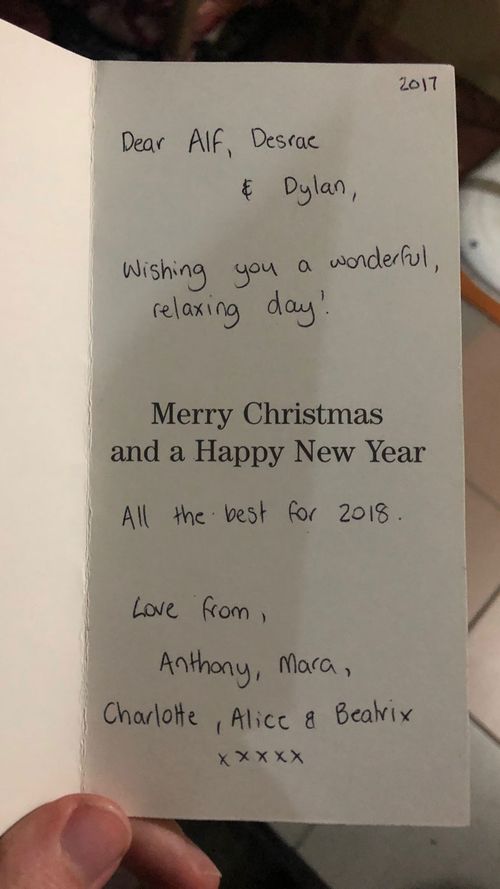 2017
Dear Alf, Desrae
& Dylan,
Wishing you a wonderful,
relaxing day!
Merry Christmas
and a Happy New Year
All the best for 2018.
Love from,
Anthony, Mara,
Charlotte, Alice & Beatrix
xxxxx